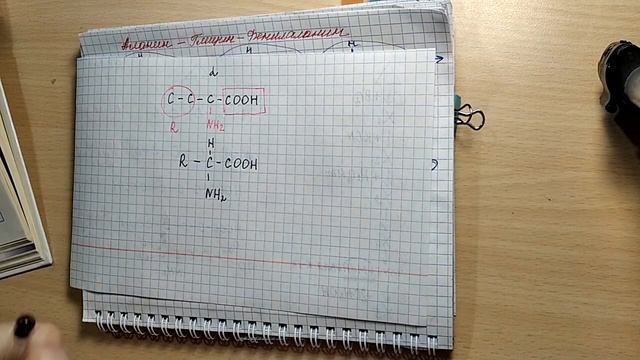 Аланин - Глицин - Фенилаланин
H H H
α
C - C - C - COOH
R NH₂
H
R - C - COOH
NH₂